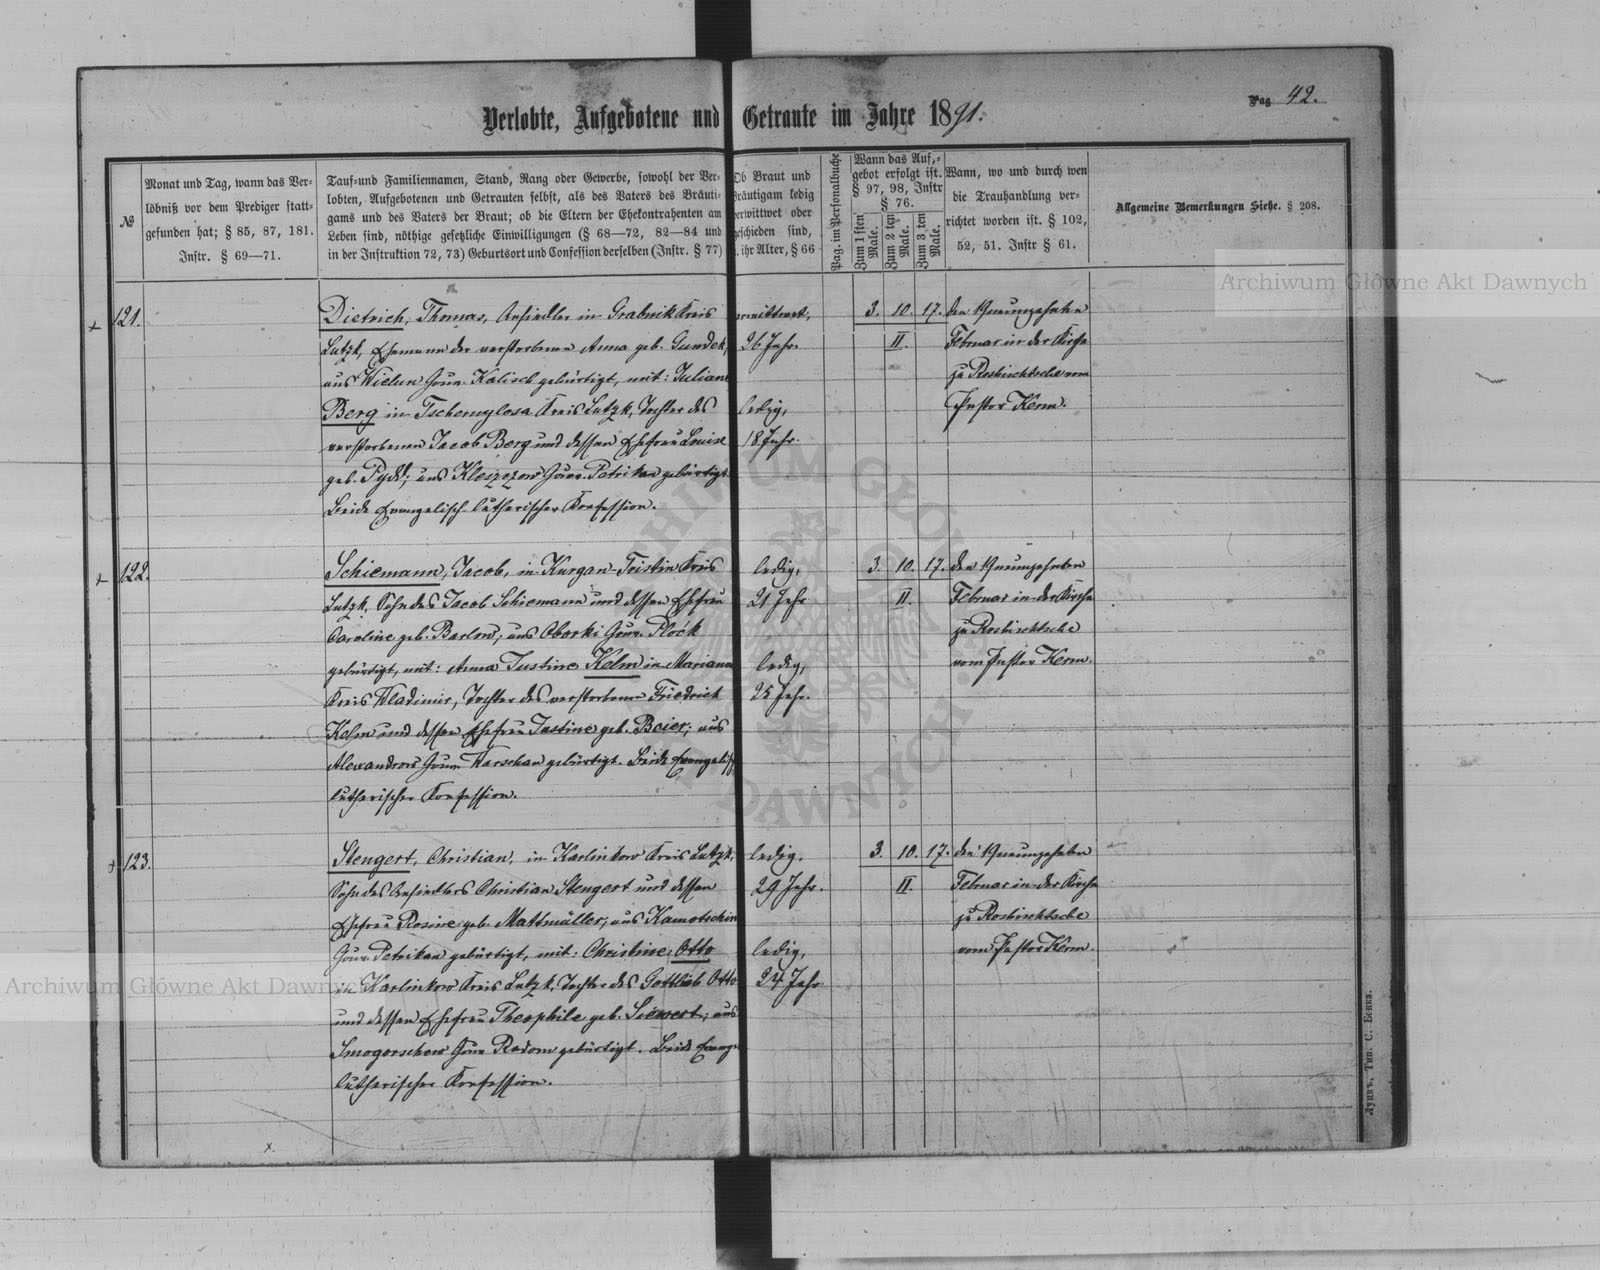 Pag 42.
Verlobte, Aufgebotene und Getraute im Jahre 1891.
№
Monat und Tag, wann das Ver-
löbniß vor dem Prediger statt-
gefunden hat; § 85, 87, 181.
Instr. § 69—71.
Tauf- und Familiennamen, Stand, Rang oder Gewerbe, sowohl der Ver-
lobten, Aufgebotenen und Getrauten selbst, als des Vaters des Bräuti-
gams und des Vaters der Braut; ob die Eltern der Ehekontrahenten am
Leben sind, nöthige gesetzliche Einwilligungen (§ 68—72, 82—84 und
in der Instruktion 72, 73) Geburtsort und Confession derselben (Instr. § 77)
Ob Braut und
Bräutigam ledig
verwittwet oder
geschieden sind,
ihr Alter, § 66
Pag. im Personalbuche
Wann das Auf-
gebot erfolgt ist.
§ 97, 98, Instr
§ 76.
Zum 1 sten Male.
Zum 2 ten Male.
Zum 3 ten Male.
Wann, wo und durch wen
die Trauhandlung ver-
richtet worden ist. § 102,
52, 51. Instr § 61.
Allgemeine Bemerkungen Siehe. § 208.
+ 121.
Dietrich, Thomas, Ansiedler in Grabnik Kreis
Lutzk, Ehemann der verstorbenen Anna geb. Gundek,
aus Wielun Gouv. Kalisch gebürtigt, mit: Juliane
Berg in Tschernylosa Kreis Lutzk, Tochter des
verstorbenen Jacob Berg und dessen Ehefrau Louise
geb. Pydd; aus Kleszczow Gouv. Petrikau gebürtigt
Beide Evangelisch-lutherischer Konfession.
verwittwet,
26 Jahr.
ledig,
18 Jahr.
3. 10. 17.
II.
den Neunzehnten
Februar in der Kirche
zu Roshischtsche vom
Pastor Kerm.
+ 122.
Schiemann, Jacob, in Kurgan-Foistin Kreis
Lutzk, Sohn des Jacob Schiemann und dessen Ehefrau
Caroline geb. Barlow; aus Oborki Gouv. Plock
gebürtigt, mit: Anna Justine Kelm in Mariano
Kreis Wladimir, Tochter des verstorbenen Friedrich
Kelm und dessen Ehefrau Justine geb. Beier; aus
Alexandrow Gouv. Warschau gebürtigt. Beide Evangelisch
lutherischer Konfession.
ledig,
21 Jahr
ledig,
25 Jahr.
3. 10. 17.
II.
den Neunzehnten
Februar in der Kirche
zu Roshischtsche
vom Pastor Kerm.
+ 123.
Stengert, Christian, in Karlinkow Kreis Lutzk,
Sohn des Ansiedlers Christian Stengert und dessen
Ehefrau Rosine geb. Mattmüller; aus Kamotschin
Gouv. Petrikau gebürtigt, mit: Christine Otto
in Karlinkow Kreis Lutzk, Tochter des Gottlieb Otto
und dessen Ehefrau Theophile geb. Siewert; aus
Smogorschew Gouv Radom gebürtigt. Beide Evang.
lutherischer Konfession.
ledig.
29 Jahr.
ledig,
24 Jahr
3. 10. 17.
II.
den Neunzehnten
Februar in der Kirche
zu Roshischtsche
vom Pastor Kerm.
x
Луцкъ, Тип. С. Бенка.
Archiwum Główne Akt Dawnych
Archiwum Główne Akt Dawnych